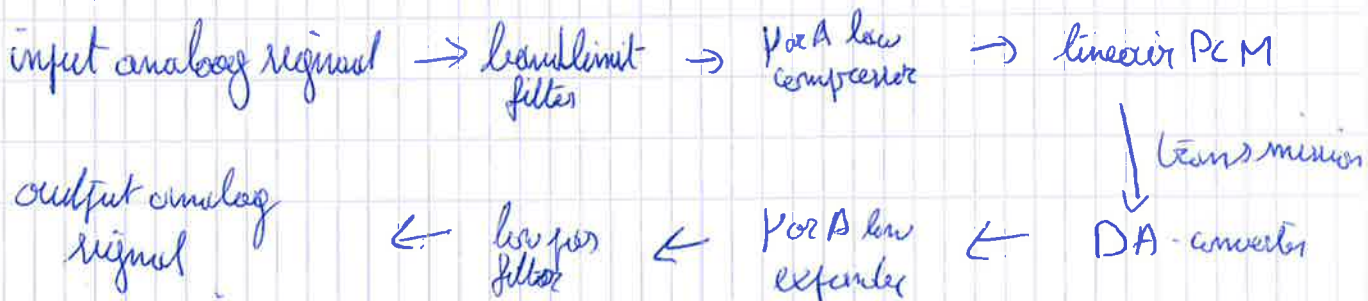 input analoog signaal → bandlimit filter → μ or A law compressor → lineair PCM
transmission
output analog signal ← low pas filter ← μ or A law expander ← DA-converter